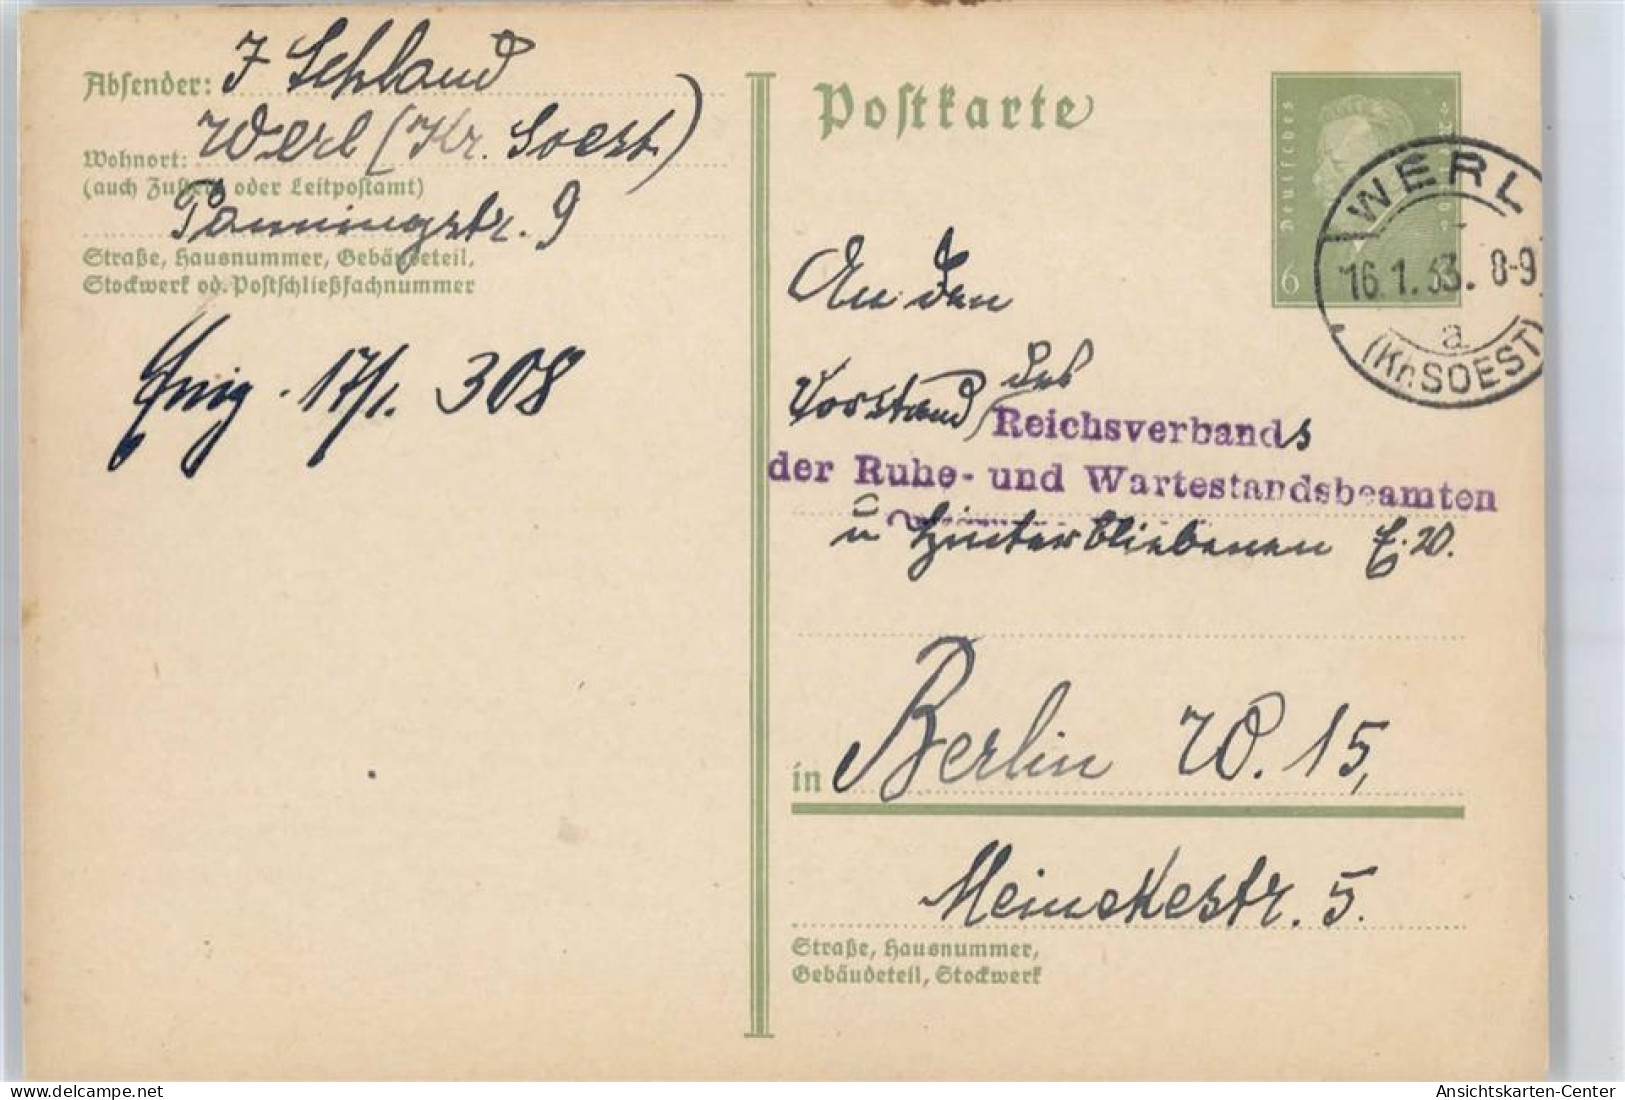 Absender: J Schlaud
Wohnort: Werl (Kr. Soest)
(auch Zustell oder Leitpostamt)
9
Straße, Hausnummer, Gebäudeteil,
Stockwerk od. Postschließfachnummer
17/1. 308
Postkarte
Deutsches
6
WERL
16.1.33. 8-9
a
(Kr. SOEST)
An den
Vorstand des
Reichsverbands
der Ruhe- und Wartestandsbeamten
u Hinterbliebenen E.V.
in Berlin W. 15,
Meinekestr. 5.
Straße, Hausnummer,
Gebäudeteil, Stockwerk
Ansichtskarten-Center